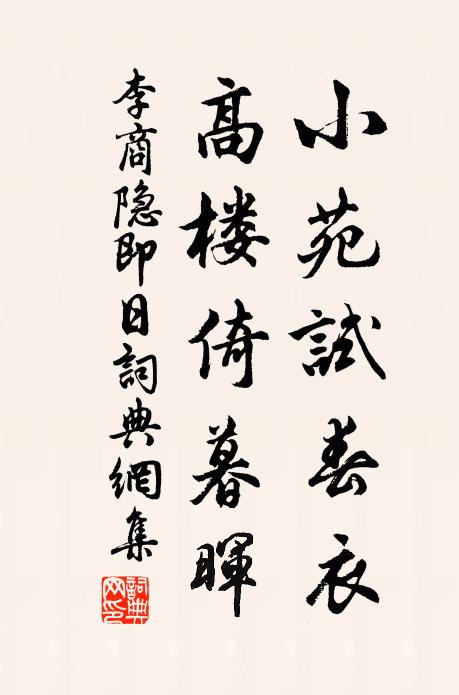 小苑試春衣
高楼倚暮暉
李商隐即日詞典網集
詞典网印